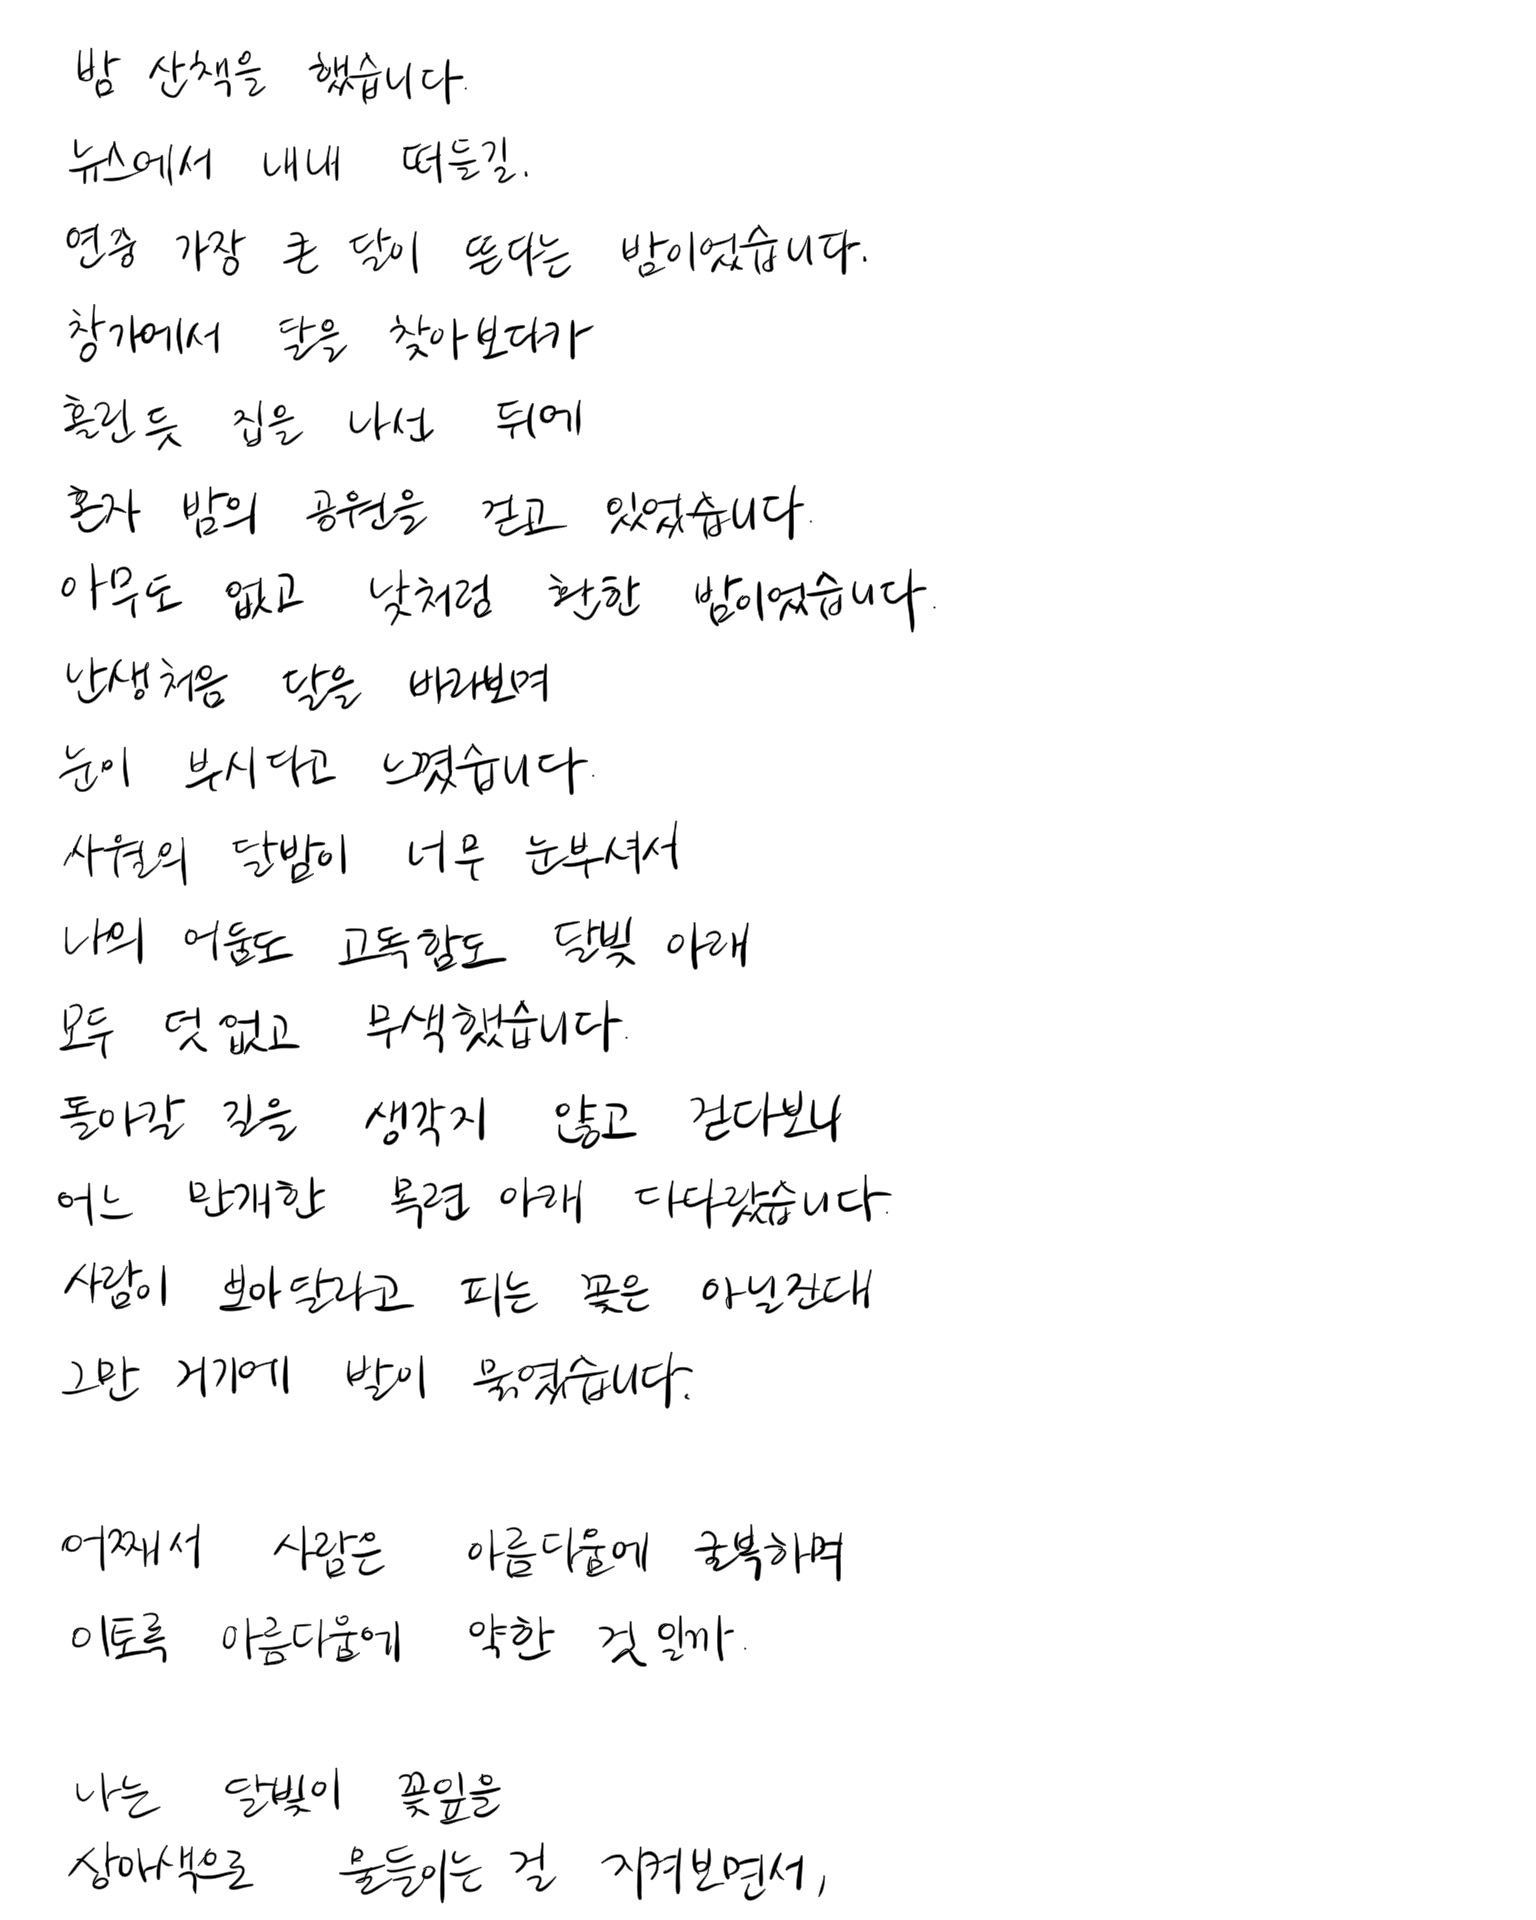 밤 산책을 했습니다.
뉴스에서 내내 떠들길.
연중 가장 큰 달이 뜬다는 밤이었습니다.
창가에서 달을 찾아보다가
홀린듯 집을 나선 뒤에
혼자 밤의 공원을 걷고 있었습니다.
아무도 없고 낮처럼 환한 밤이었습니다.
난생처음 달을 바라보며
눈이 부시다고 느꼈습니다.
사월의 달밤이 너무 눈부셔서
나의 어둠도 고독함도 달빛 아래
모두 덧없고 무색했습니다.
돌아갈 길을 생각지 않고 걷다보니
어느 만개한 목련 아래 다다랐습니다.
사람이 보아달라고 피는 꽃은 아닐진대
그만 거기에 발이 묶였습니다.
어째서 사람은 아름다움에 굴복하며
이토록 아름다움에 약한 것일까.
나는 달빛이 꽃잎을
상아색으로 물들이는 걸 지켜보면서,